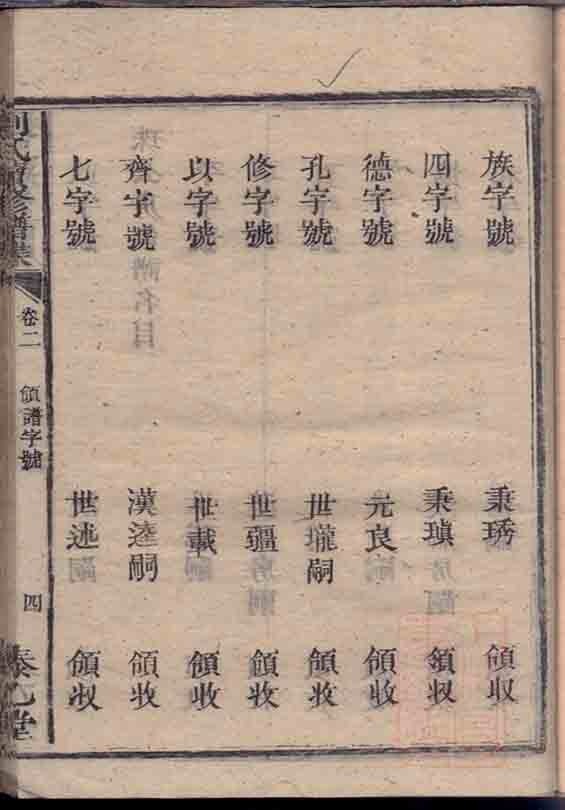 族字號 秉琇 領収
四字號 秉瑱 領収
德字號 元良 領收
孔字號 世壠嗣 領收
修字號 世疆 領收
以字號 世載 領收
齊字號 漢逵嗣 領收
七字號 世述 領収
氏修譜
卷二 領譜字號 四
堂